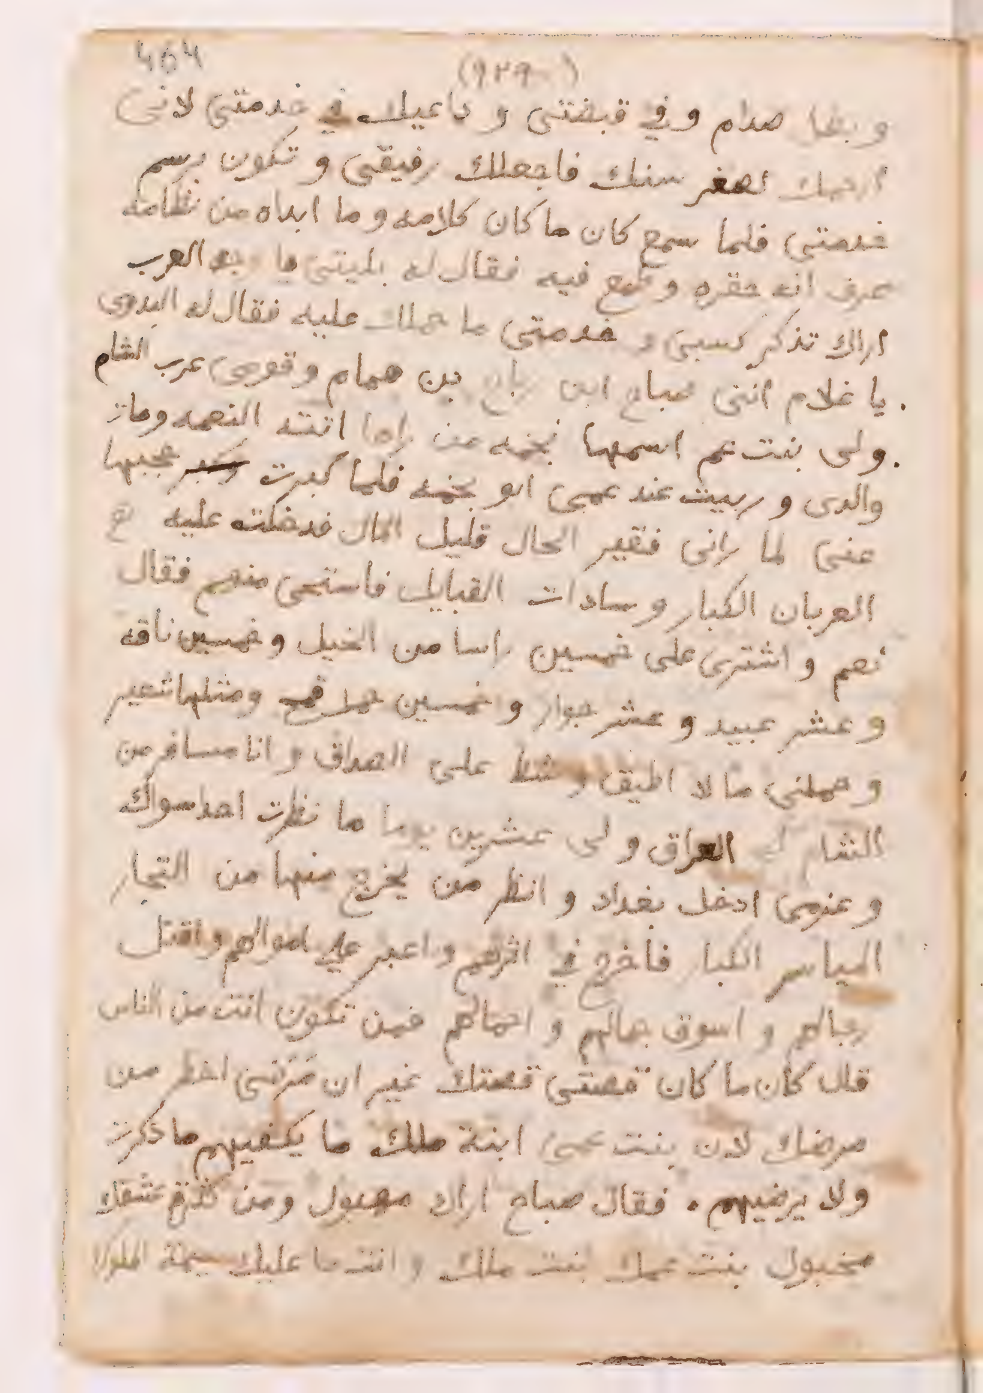 464
(٩٢٩)
وبقا صدام وفي قبضتى و داعيك في خدمتى لانى
ارحمك لصغر سنك فاجعلك رفيقى و تكون برسم
خدمتى فلما سمع كان ما كان كلامه و ما ابداه من نظامه
عرف انه حقره و طمع فيه فقال له يا وجه العرب
اراك تذكر كسبى و خدمتى ما حملك عليه فقال له البدوى
يا غلام اننى صباح ابن رباح بن همام و قومى عرب الشام
ولى بنت عم اسمها نجمه من راها اتته النعمه ومات
والدى و ربيت عند عمى ابو نجمه فلما كبرت حجبها
عنى لما رانى فقير الحال قليل المال فدخلت عليه
العربان الكبار و سادات القبايل فاستحى منهم فقال
نعم و اشترى على خمسين راسا من الخيل و خمسين ناقه
و عشر عبيد و عشر جوار و خمسين حمل قمح ومثلها شعير
و حملنى ما لا اطيق و شطط على الصداق و انا مسافر من
الشام الى العراق و لى عشرين يوما ما نظرت احد سواك
و عزمى ادخل بغداد و انظر من يخرج منها من التجار
المياسر الكبار فاخرج في اثرهم و اعبر على اموالهم واقتل
رجالهم و اسوق جمالهم و احمالهم فمن تكون انت من الناس
قال كان ما كان قصتى قصتك غير ان مرضى اخطر من
مرضك لان بنت عمى ابنة ملك ما يكفيهم ما ذكرت
ولا يرضيهم . فقال صباح اراك مهبول ومن كثرة عشقك
مخبول بنت عمك بنت ملك و انت ما عليك سيمة الملوك